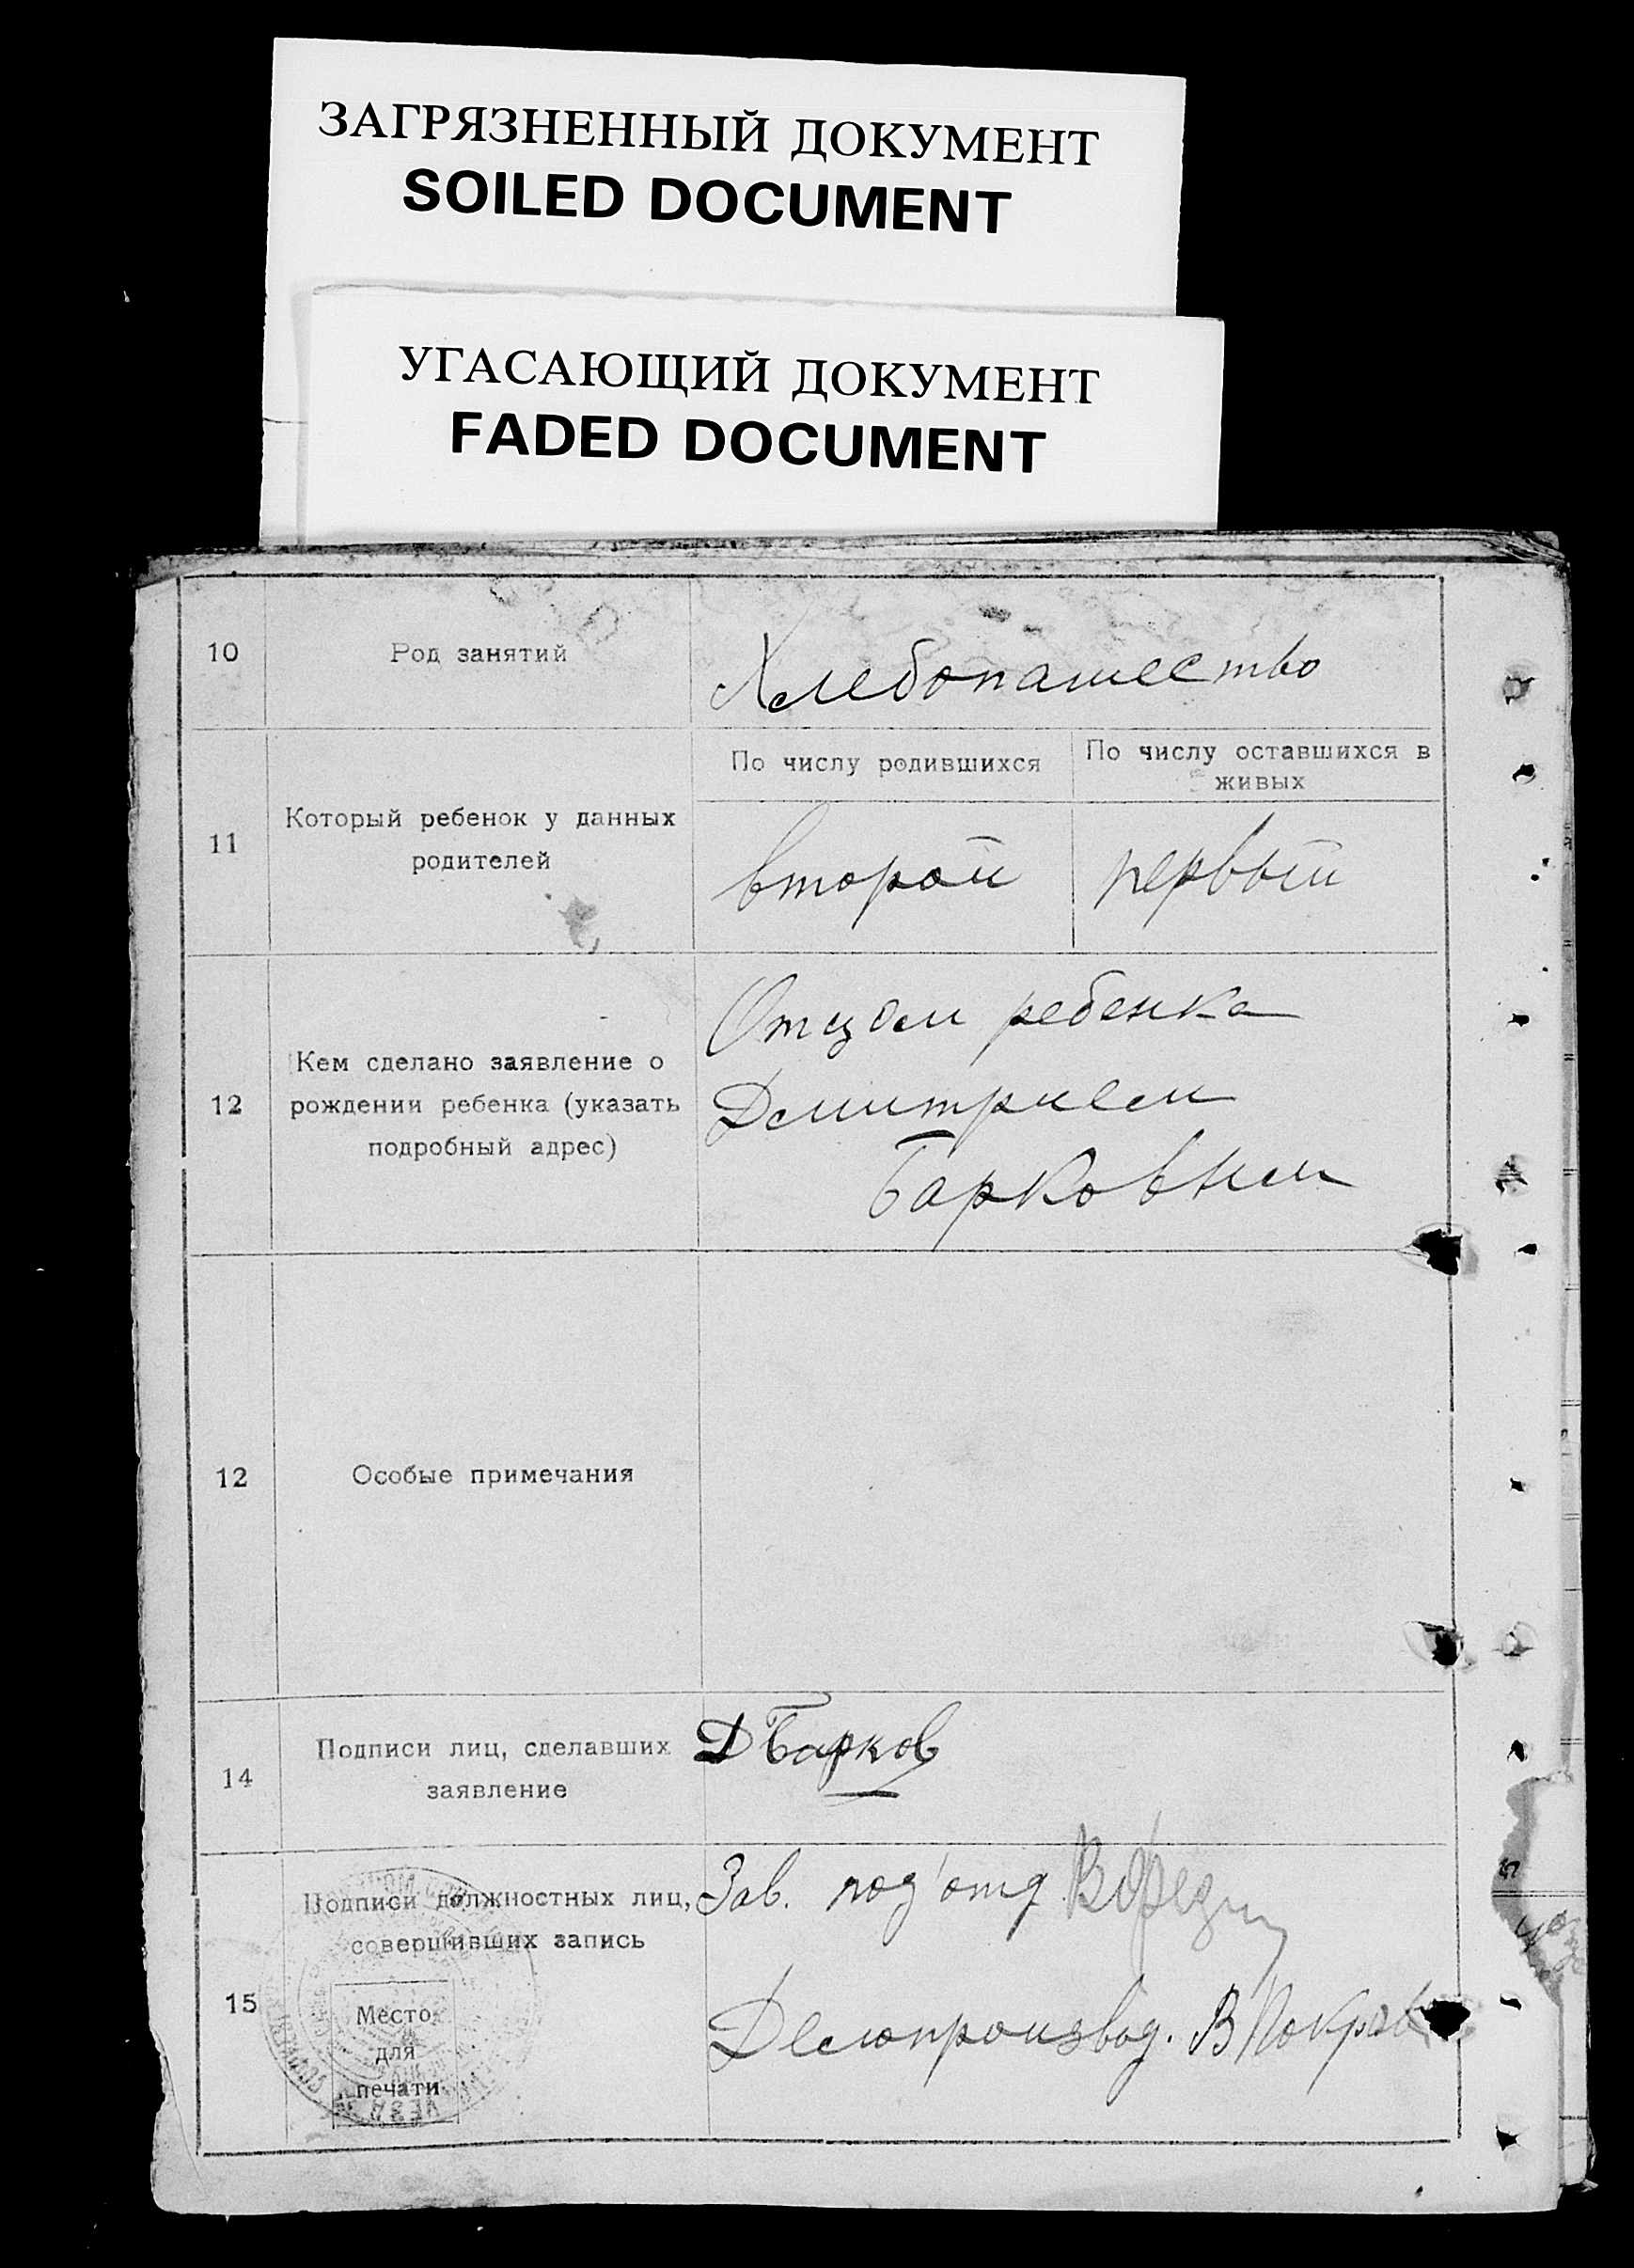 ЗАГРЯЗНЕННЫЙ ДОКУМЕНТ
SOILED DOCUMENT
УГАСАЮЩИЙ ДОКУМЕНТ
FADED DOCUMENT
10 Род занятий Хлебопашество
По числу родившихся
По числу оставшихся в
живых
11
Который ребенок у данных
родителей
второй
первый
12
Кем сделано заявление о
рождении ребенка (указать
подробный адрес)
Отцом ребенка
Демитрием
Барковым
12 Особые примечания
14
Подписи лиц, сделавших
заявление
ДБарков
15
Подписи должностных лиц,
совершивших запись
Место
для
печати
Зав. под'отд
Делопроизвод.